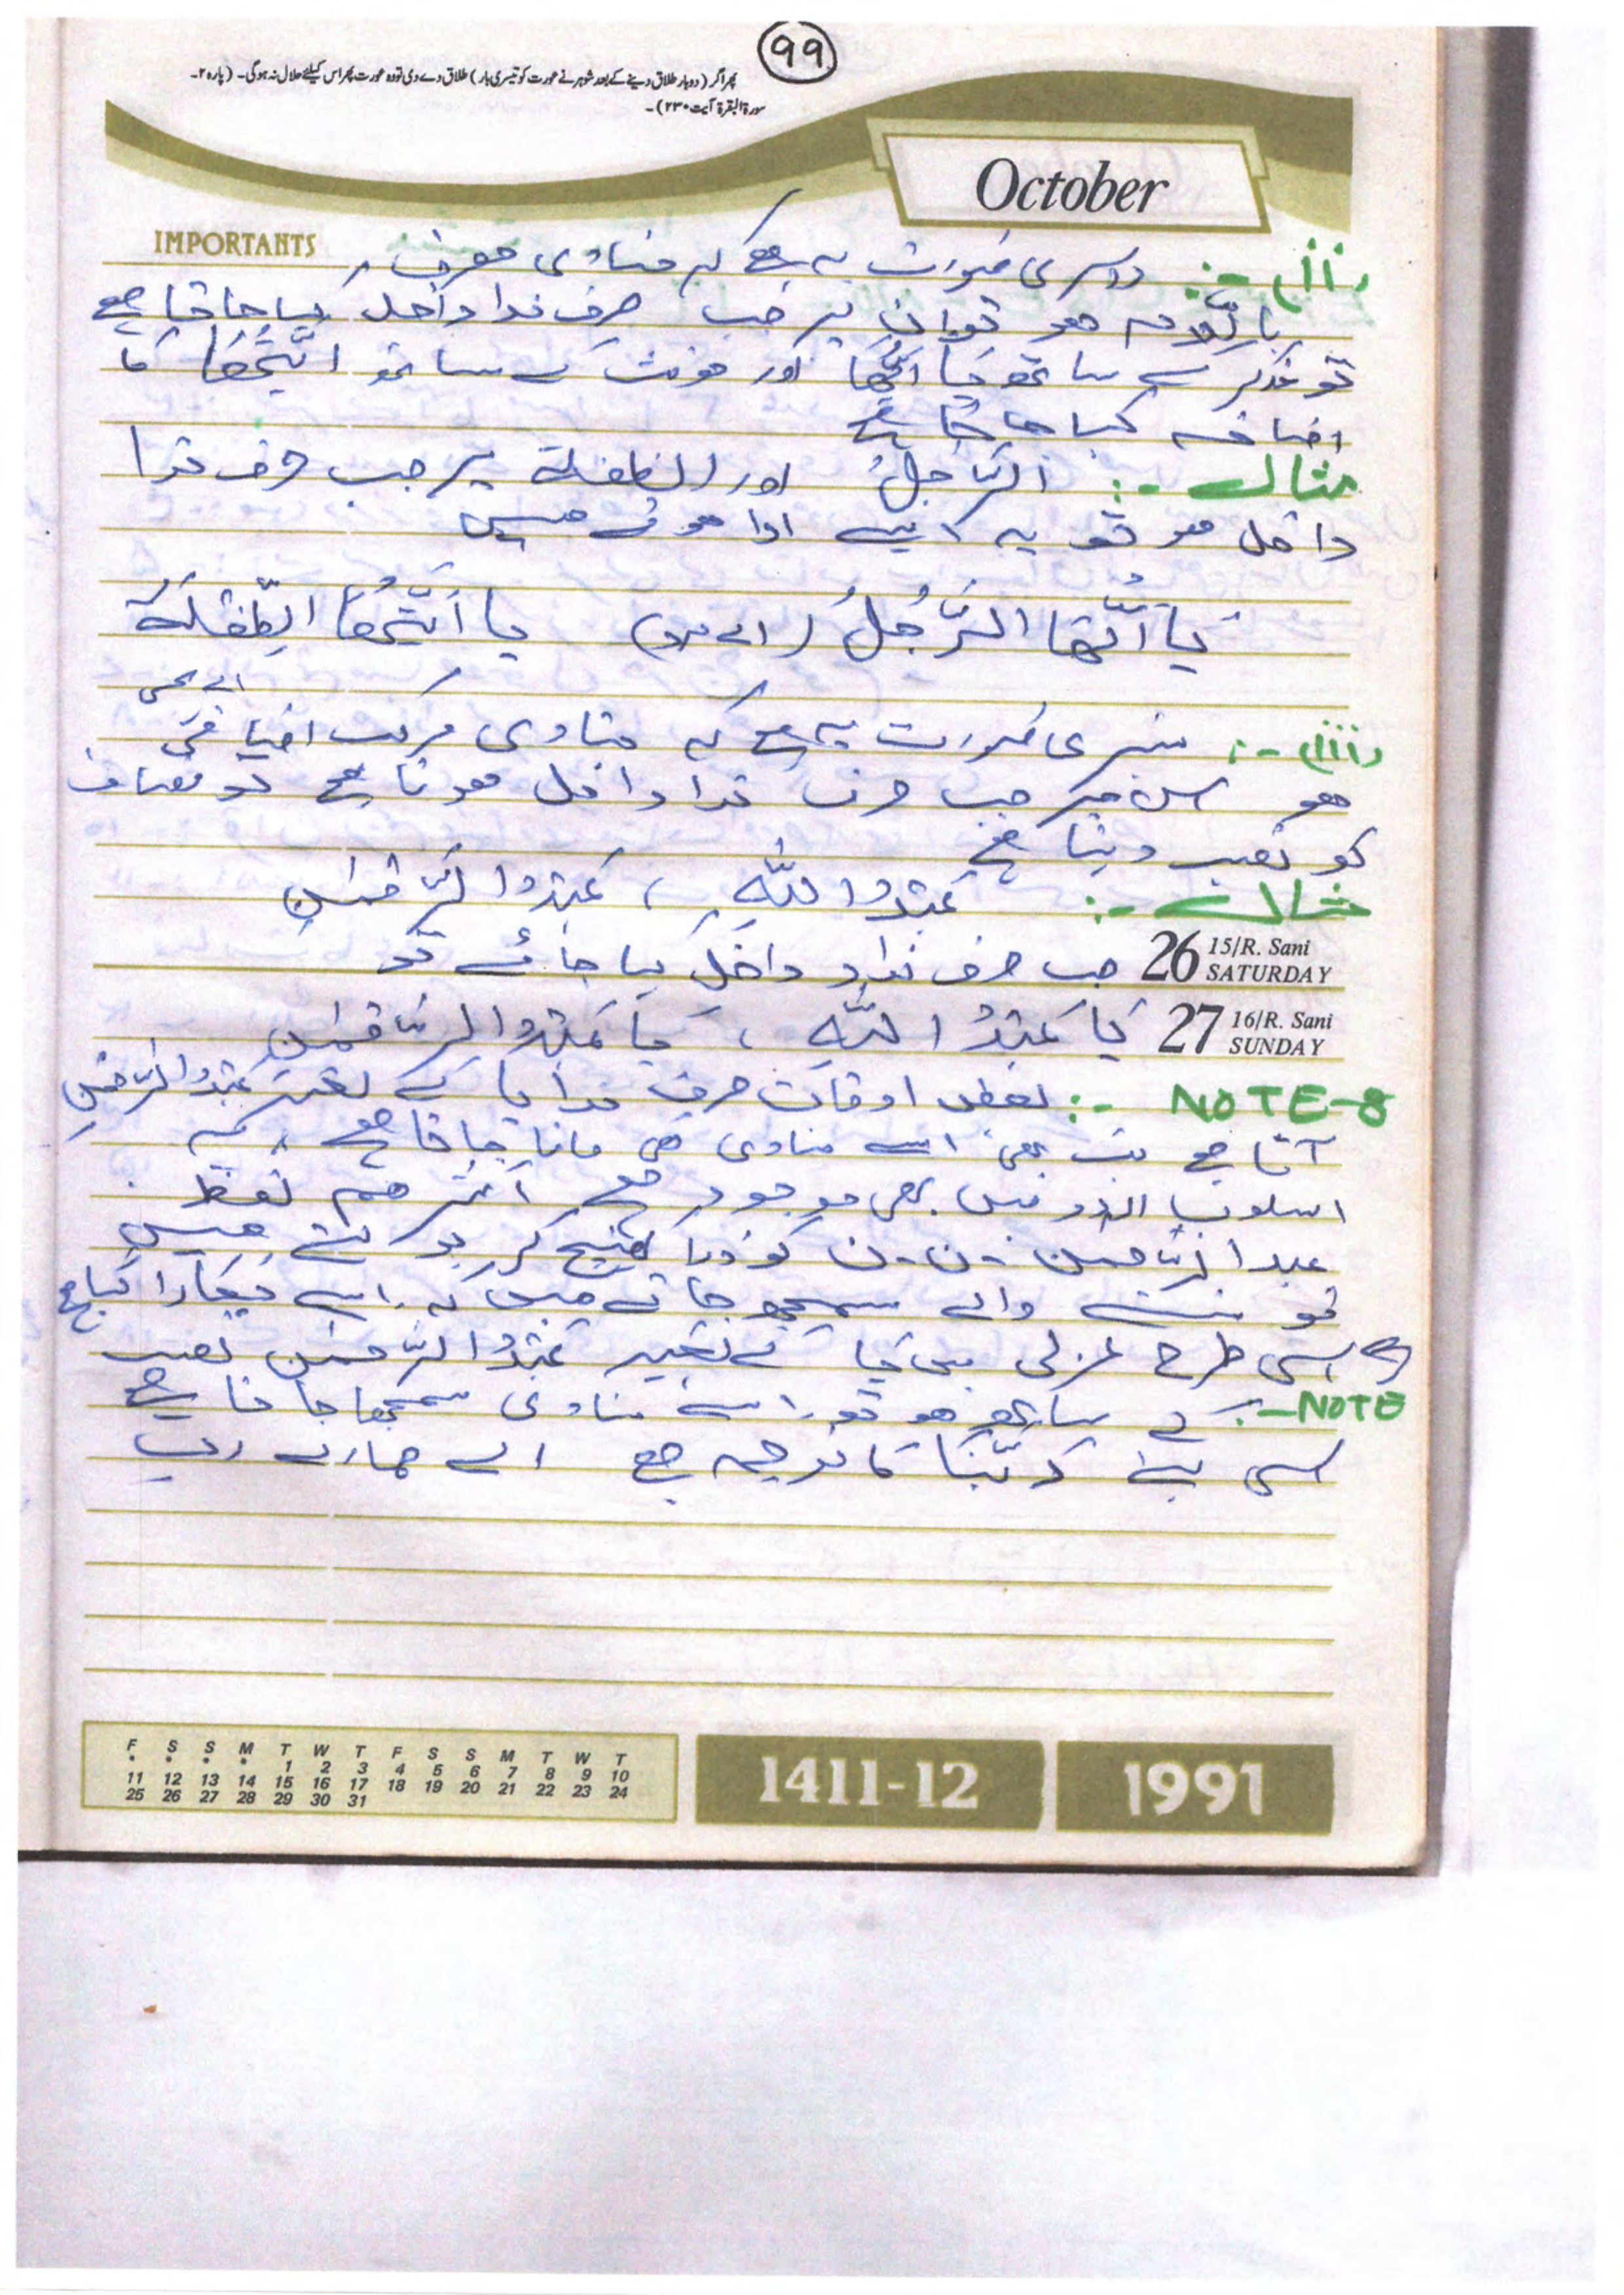 99
پھر اگر (دوبار طلاق دینے کے بعد شوہر نے عورت کو تیسری بار) طلاق دے دی تو وہ عورت پھر اس کیلئے حلال نہ ہوگی۔ (پارہ ۲۔
سورۃ البقرۃ آیت ۲۳۰)۔
October
IMPORTANTS
(ii) -: دوسری صورت یہ ہے کہ منادی معرف
باللّام ہو تو ان پر جب حرف ندا داخل کیا جاتا ہے
تو مذکر کے ساتھ یا ایُّھا اور مونث کے ساتھ ایَّتُھَا کا
اضافہ کیا جاتا ہے
مثال -: الرّجلُ اور الطفلة پر جب حرف ندا
داخل ہو تو یہ ایسے ادا ہوتے ہیں
یَا اَیُّھَا الرَّجُلُ (اے مرد) یا اَیَّتُھَا الطِّفْلَةُ
اے بچی
(iii) -: تیسری صورت یہ ہے کہ منادی مرکب اضافی
ہو اس پر جب حرف ندا داخل ہوتا ہے تو مضاف
کو نصب دیتا ہے
مثال -: عَبْدُ اللّٰہِ ، عَبْدُ الرّحمٰن
26 15/R. Sani SATURDAY جب حرف ندا داخل کیا جائے تو
27 16/R. Sani SUNDAY یَا عَبْدَ اللّٰہِ ، یا عَبْدَ الرّحمٰن
NOTE-8 -: بعض اوقات حرف ندا یا کے بغیر عبدَ الرّحمٰنِ
آتا ہے تب بھی اسے منادی ہی مانا جاتا ہے یہ
اسلوب اردو میں بھی موجود ہے اکثر ہم لفظ
عبد الرّحمٰن - ن - ن کو ذرا کھینچ کر بولتے ہیں
تو سننے والے سمجھ جاتے ہیں کہ اسے پکارا گیا ہے
اسی طرح عربی میں یا کے بغیر عَبْدَ الرّحمٰن نصب
NOTE -: کے ساتھ ہو تو اسے منادی سمجھا جاتا ہے
اسی لئے رَبَّنَا کا ترجمہ ہے اے ہمارے رب
F S S M T W T F S S M T W T
* * * * 1 2 3 4 5 6 7 8 9 10
11 12 13 14 15 16 17 18 19 20 21 22 23 24
25 26 27 28 29 30 31
1411-12
1991